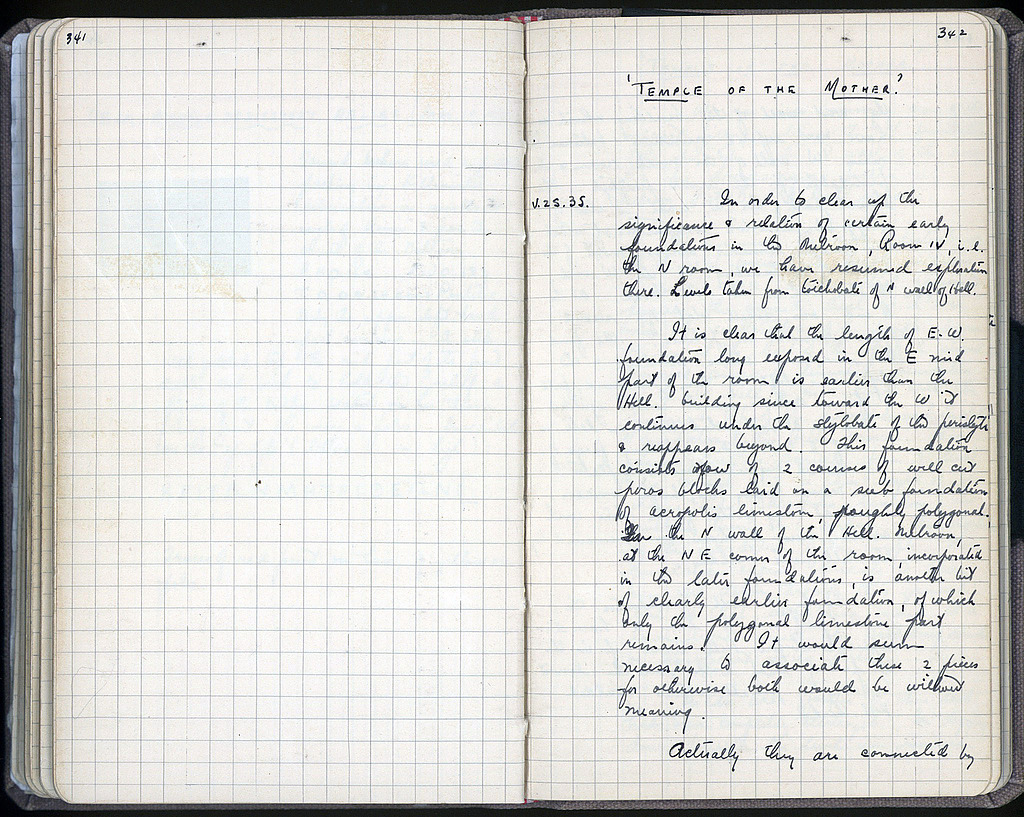 341
342
'TEMPLE OF THE MOTHER'
V.25.35.
In order to clear up the
significance & relation of certain early
foundations in the Metroon, Room IV, i.e.
the N room, we have resumed exploration
there. Levels taken from toichobate of N wall of Hell.
It is clear that the length of E-W.
foundation long exposed in the E mid
part of the room is earlier than the
Hell. building since toward the W it
continues under the stylobate of the peristyle
& reappears beyond. This foundation
consists now of 2 courses of well cut
poros blocks laid on a sub foundation
of acropolis limestone, roughly polygonal.
In the N wall of the Hell. Metroon,
at the NE corner of the room, incorporated
in the later foundations, is another bit
of clearly earlier foundation, of which
only the polygonal limestone part
remains. It would seem
necessary to associate these 2 pieces
for otherwise both would be without
meaning.
Actually they are connected by